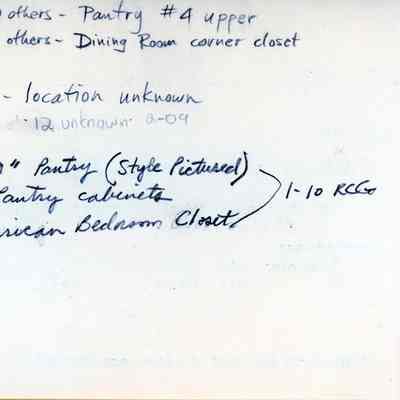 others - Pantry #4 upper
others - Dining Room corner closet
- location unknown
12 unknown 2-09
" Pantry (Style Pictured)
Pantry cabinets
1-10 RCG
erican Bedroom Closet